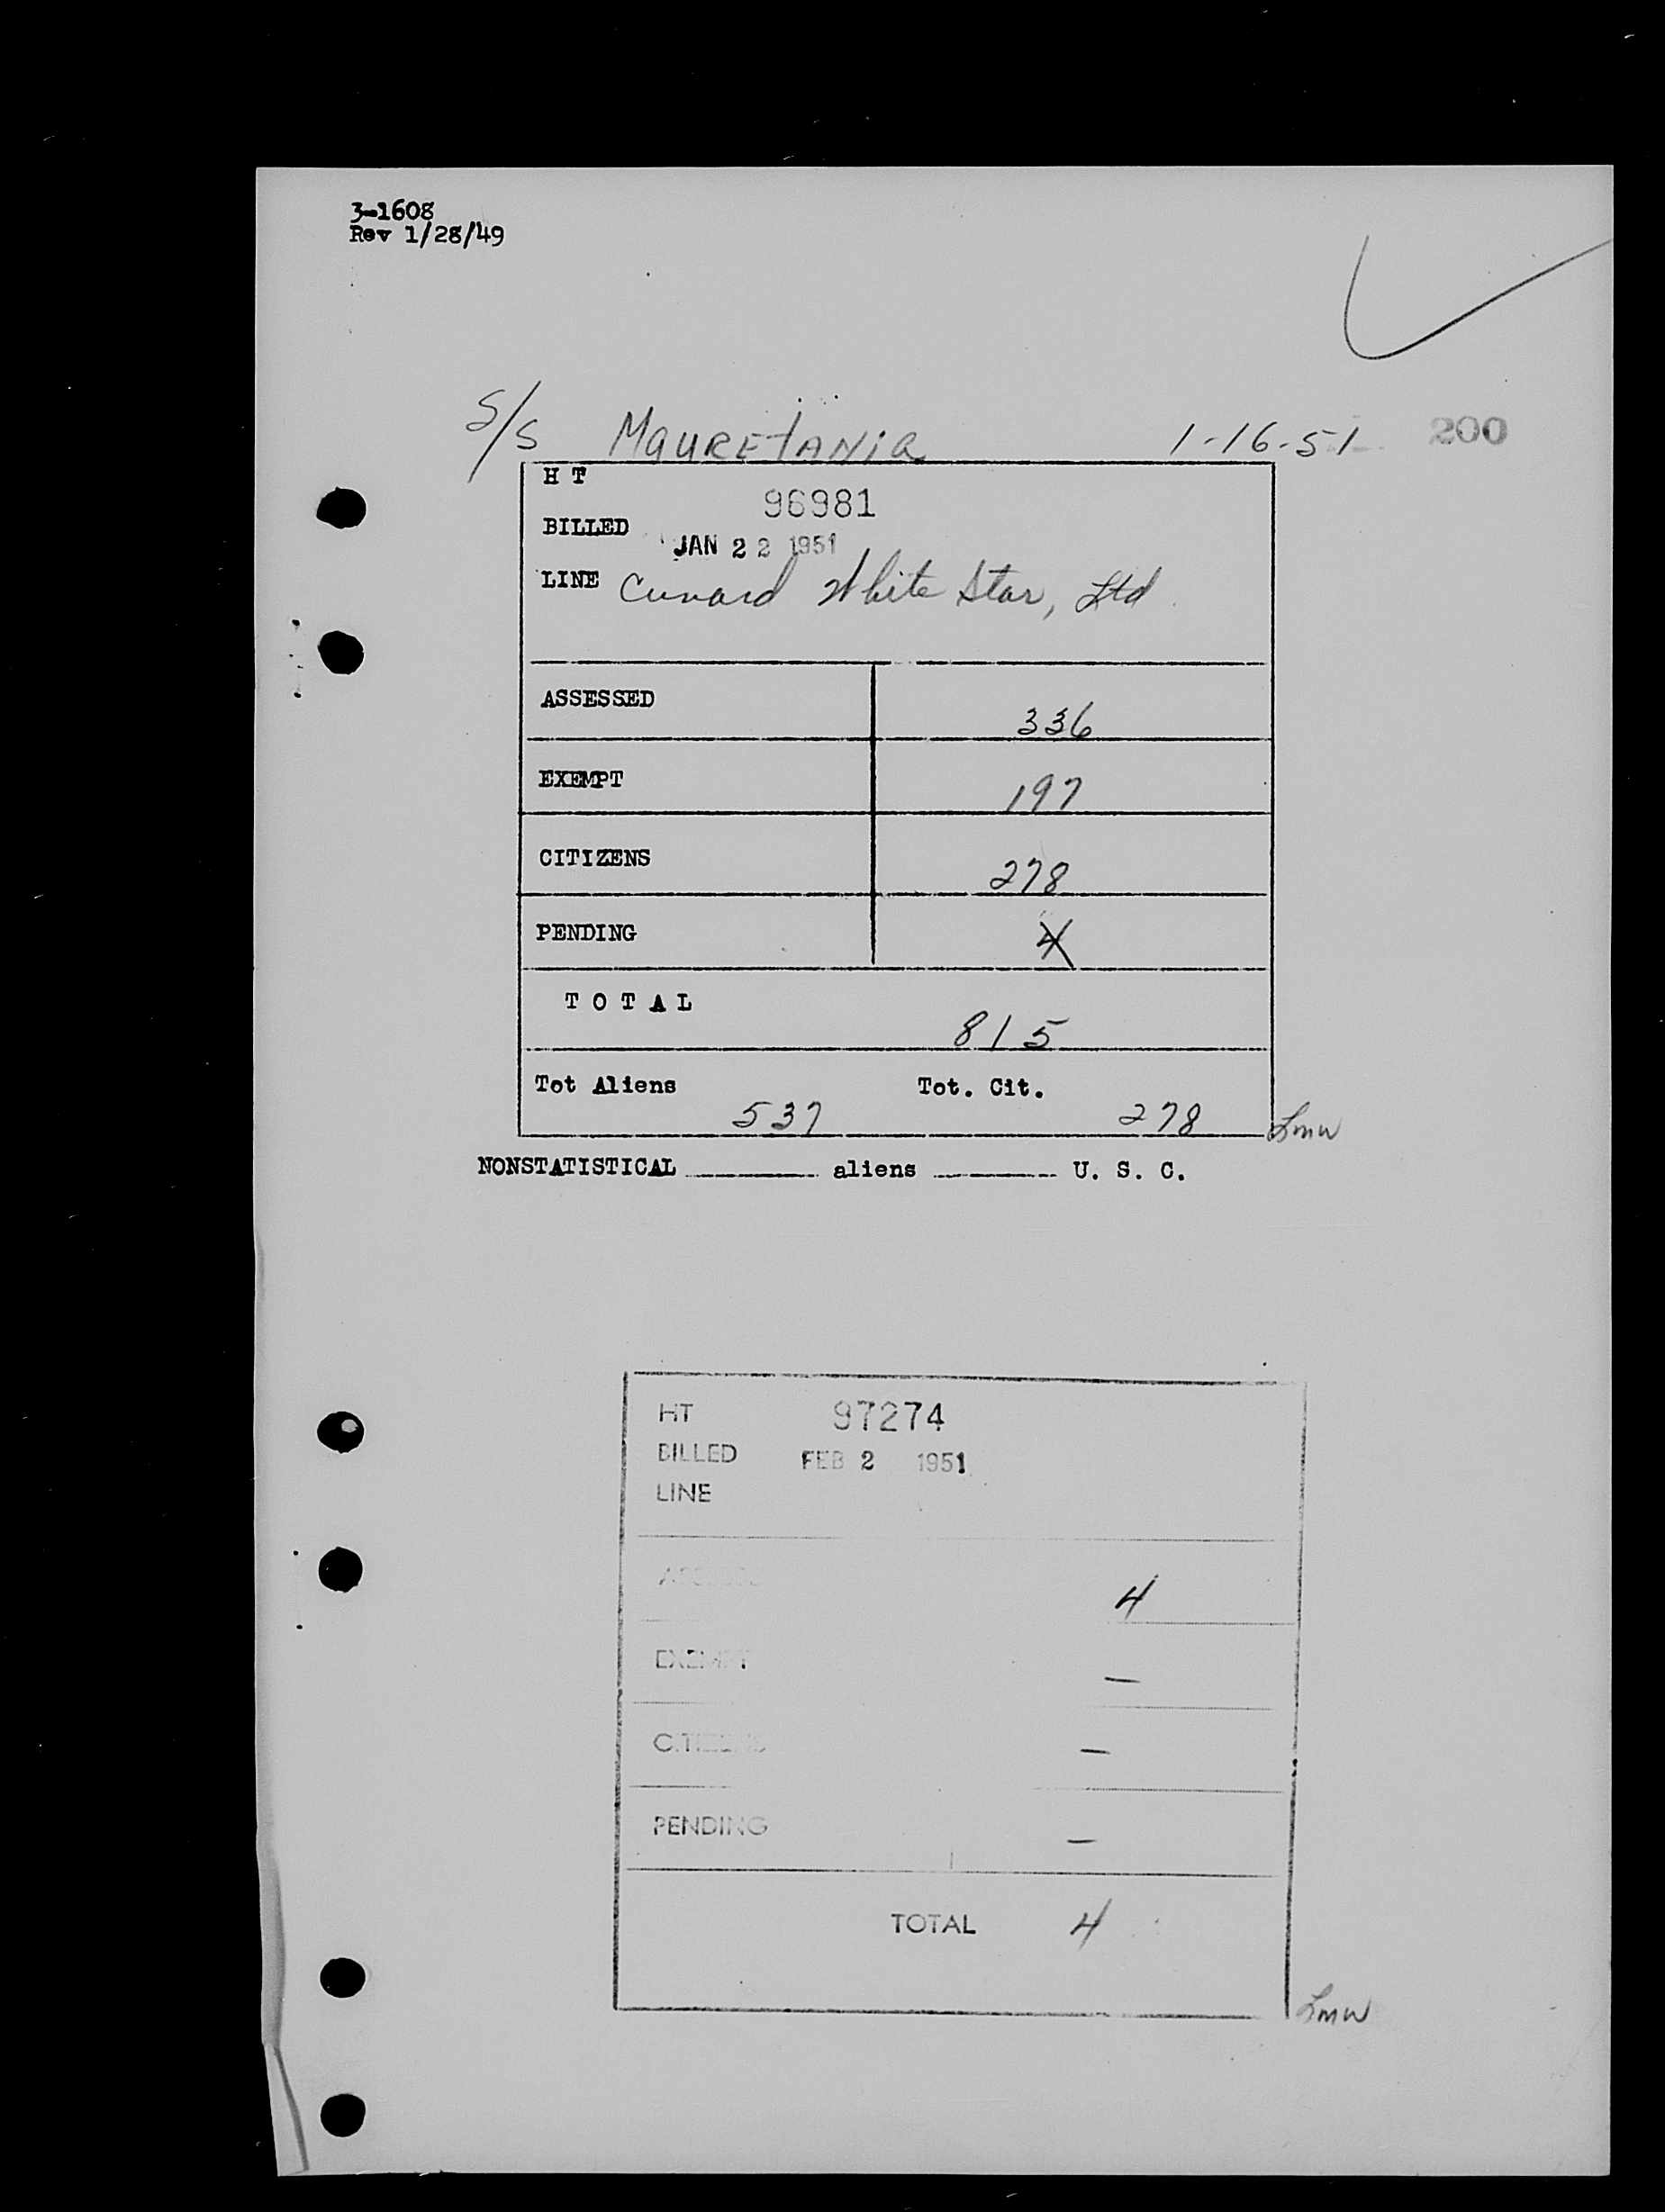 3-1608
Rev 1/28/49
S/S Mauretania 1-16-51 200
H T 96981
BILLED JAN 22 1951
LINE Cunard White Star, Ltd
ASSESSED 336
EXEMPT 197
CITIZENS 278
PENDING 4
TOTAL 815
Tot Aliens 537 Tot. Cit. 278 Lmw
NONSTATISTICAL ______ aliens ______ U. S. C.
HT 97274
BILLED FEB 2 1951
LINE
4
EXEMPT —
CITIZENS —
PENDING —
TOTAL 4
Lmw